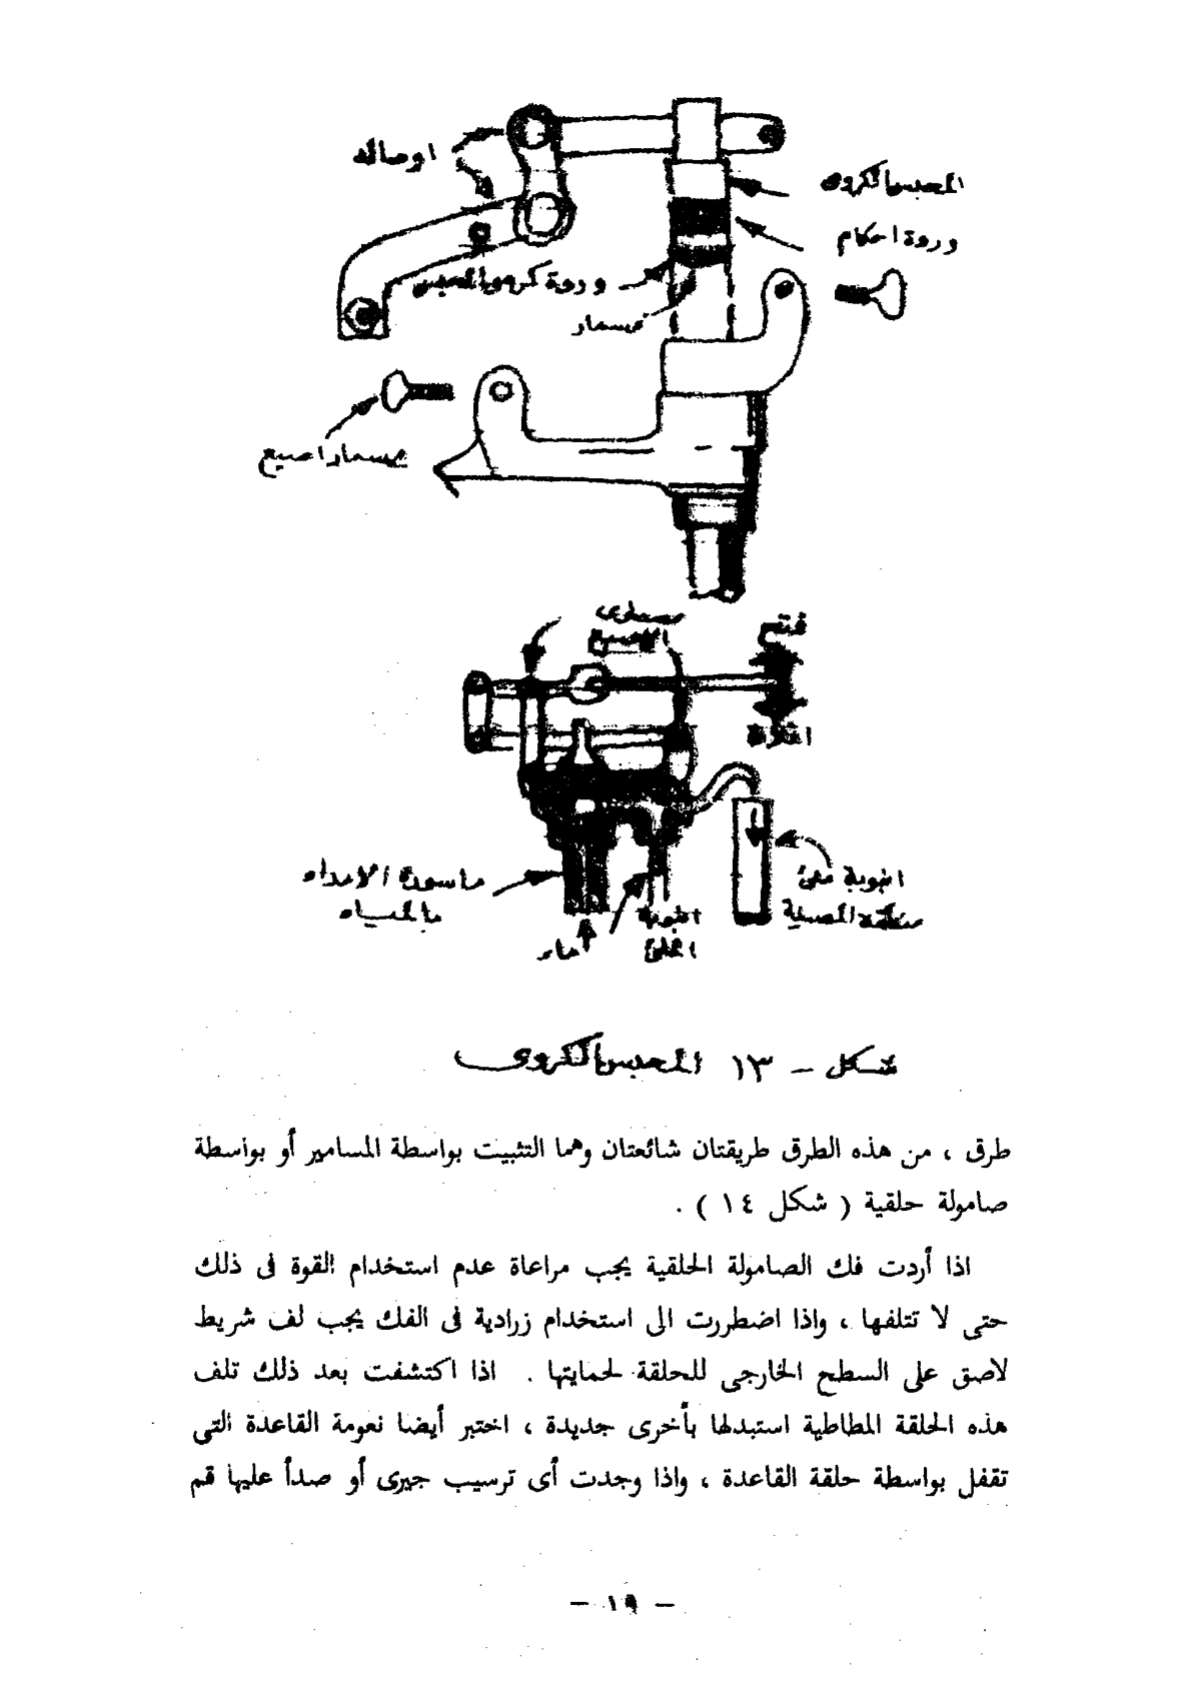 اوصاله
المحبس الكروى
وردة احكام
وردة كرسى المحبس
مسمار
مسمار اصبع
مسمارى
الاصبع
فتح
اغلاق
ماسورة الامداد
بالمياه
ماء
انبوبة
الملئ
انبوبة ملئ
منطقة المصيدة
شكل – ١٣ المحبس الكروى
طرق ، من هذه الطرق طريقتان شائعتان وهما التثبيت بواسطة المسامير أو بواسطة
صامولة حلقية ( شكل ١٤ ) .
اذا أردت فك الصامولة الحلقية يجب مراعاة عدم استخدام القوة فى ذلك
حتى لا تتلفها ، واذا اضطررت الى استخدام زرادية فى الفك يجب لف شريط
لاصق على السطح الخارجى للحلقة لحمايتها . اذا اكتشفت بعد ذلك تلف
هذه الحلقة المطاطية استبدلها بأخرى جديدة ، اختبر أيضا نعومة القاعدة التى
تقفل بواسطة حلقة القاعدة ، واذا وجدت أى ترسيب جيرى أو صدأ عليها قم
– ١٩ –